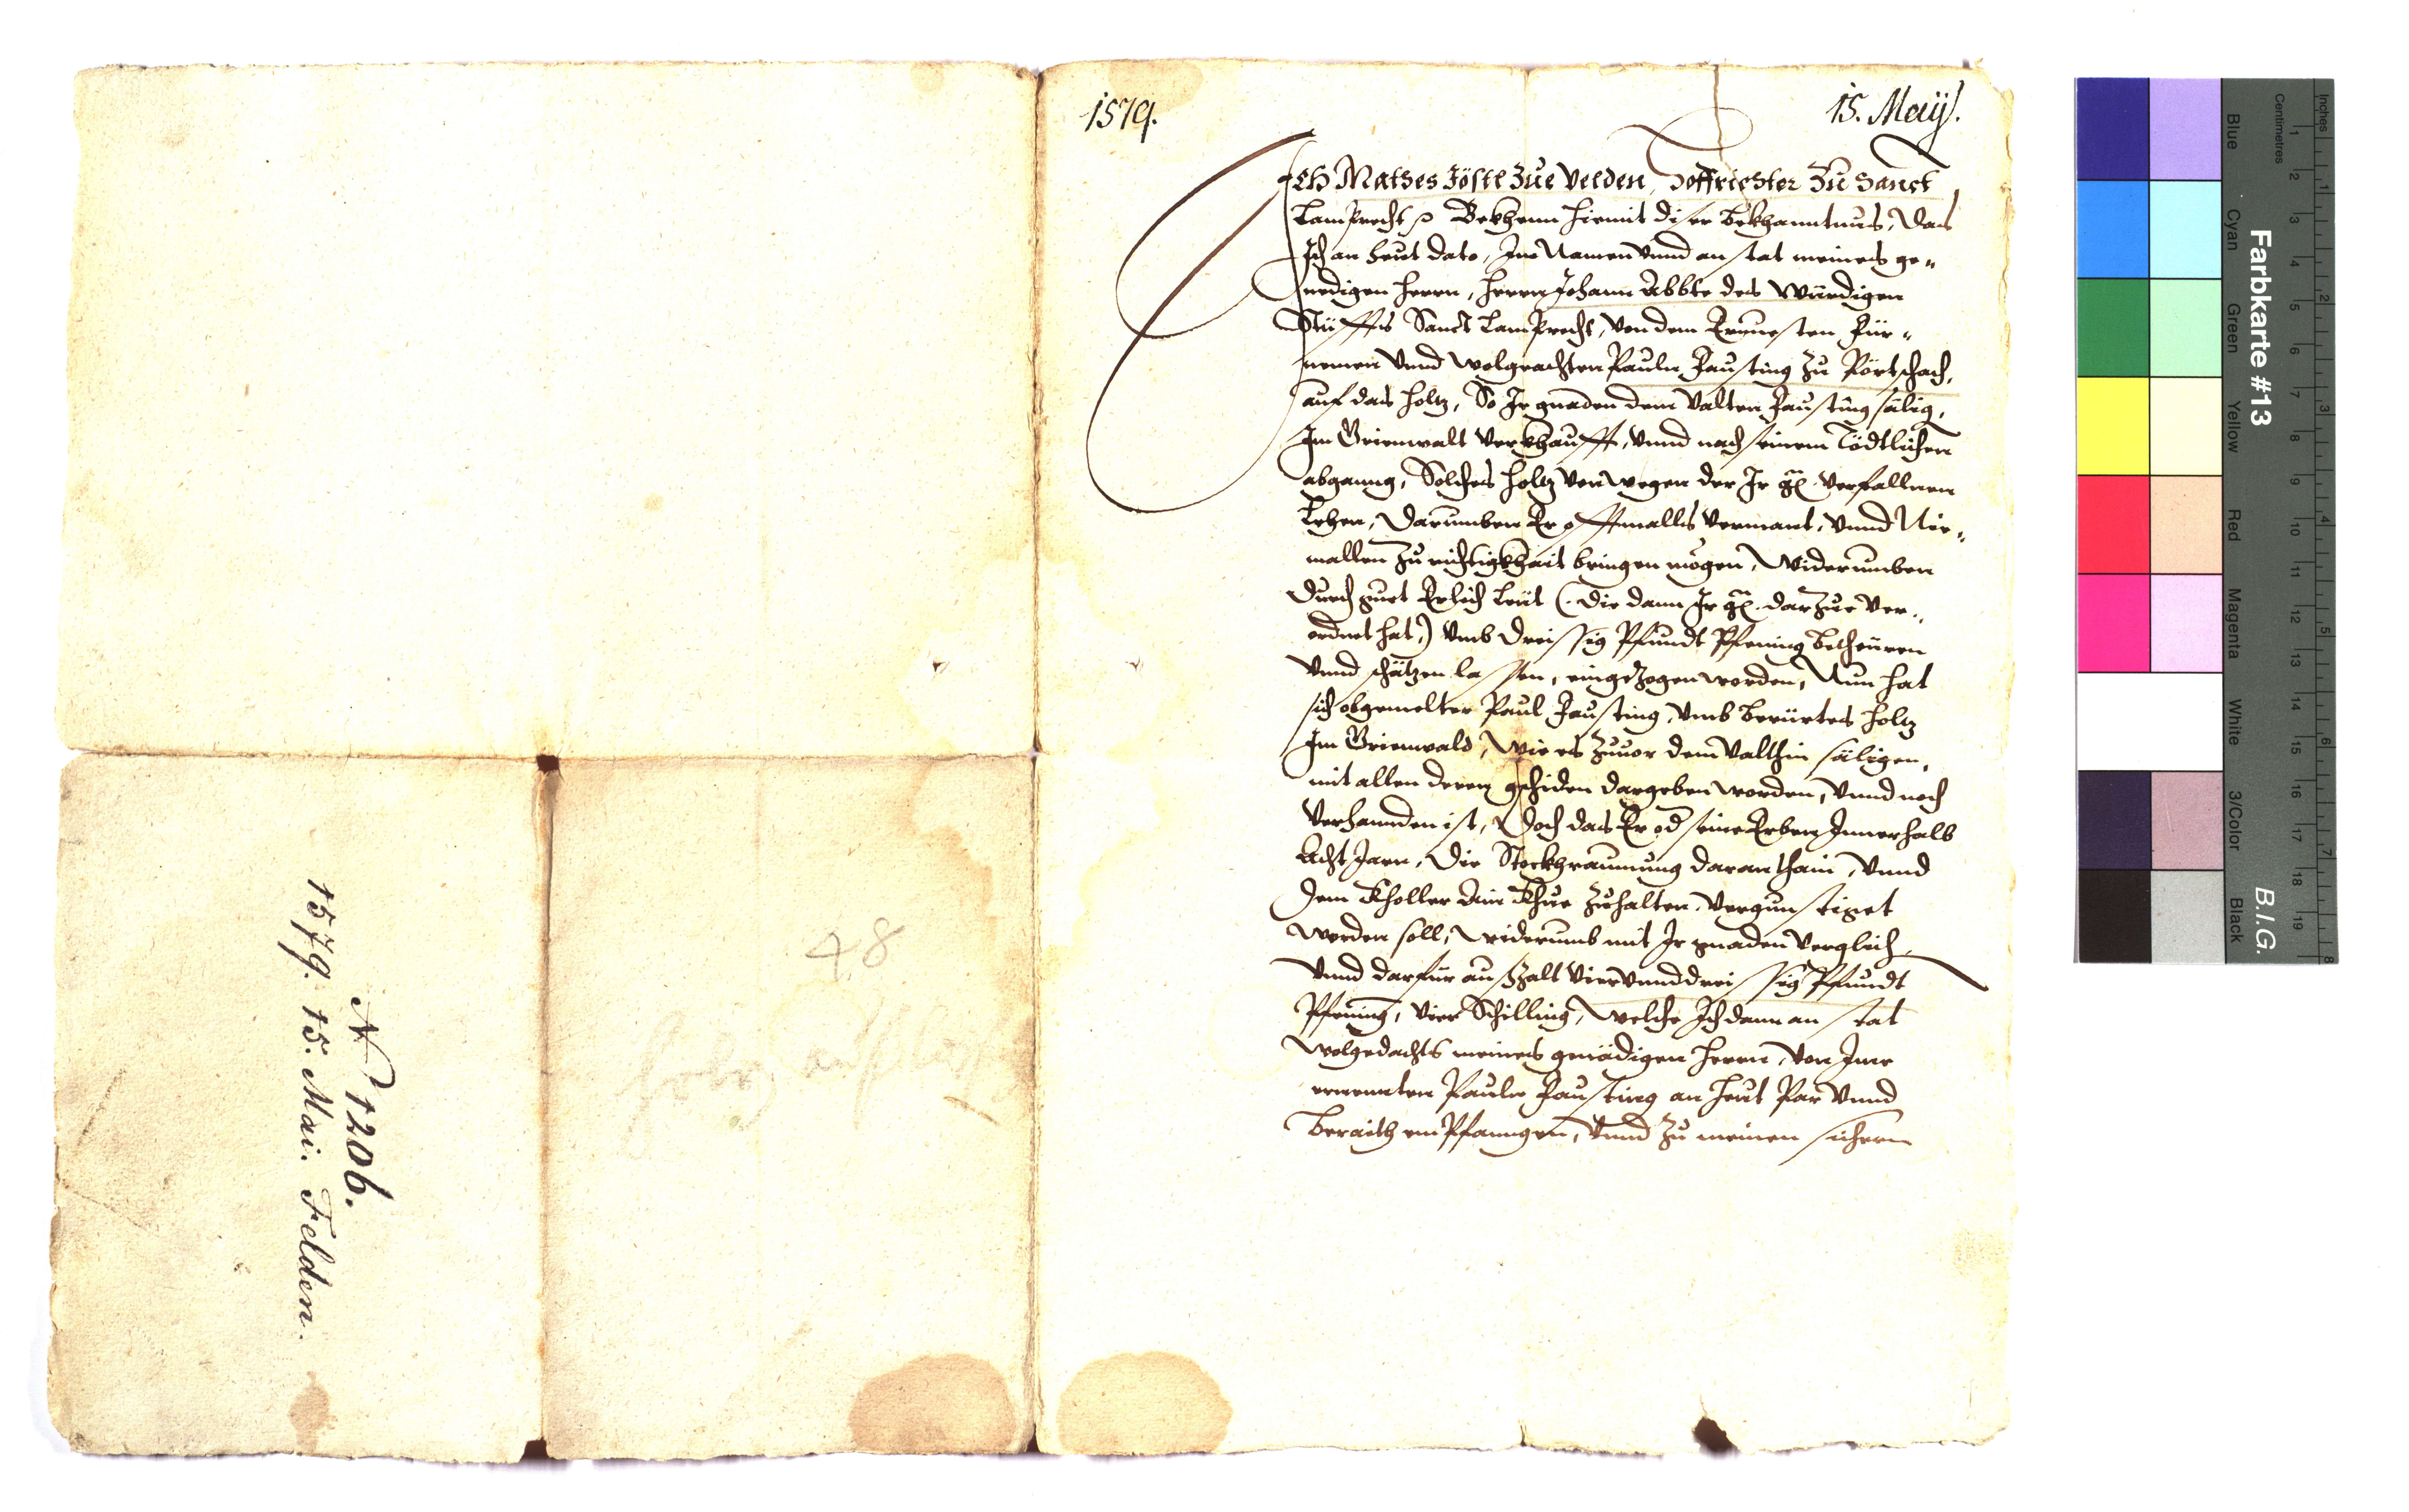 1579.
15. Maÿ.
Ich Mathes Jöstl zue Velden, Hoffrichter zu Sanct
Lamprecht Bekhenn hiemit diser Bekhanntnus, das
Ich an heut dato, Inn Namen vnnd anstat meines ge„
nedigen herrn, herrn Johann Abbte des Würdigen
Stüffts Sanct Lamprecht, von dem Ernuesten Für„
nemen vnnd wolgeachten Pauln Fausting zu Pörtschach,
auf das holtz, So Ir gnaden dem Valten Fausting sälig,
Im Grienwalt verkhaufft, vnnd nach seinem Tödtlichen
abganng, Solches holtz von wegen der Ir g. verfallnen
Lehen, Darumben Er offtmalls vermant, vnnd Nie„
mallen zu richtigkhait bringen mögen, Widerumben
durch guet Erlich Leüt (die dann Ir g. darzue ver„
ordnet hat,) vmb dreissig Pfundt Pfening betheuren
vnnd schätzen lassen, eingezogen worden, Nun hat
sich obgemelter Paul Fausting, vmb berürtes holtz
Im Grienwald, wie es zuuor dem Valthin säligen,
mit allen deren gehiden dargeben worden, vnnd noch
verhannden ist, Doch das Er od seine Erben Innerhalb
Acht Jarn, die Stockhraumung daran thain, vnnd
dem Kholler ain Khue zuhalten, vergunstiget
werden soll, widerumb mit Ir gnaden verglich,
vnnd darfür ausszalt viervnnddreissig Pfundt
Pfening, vier Schilling, welche Ich dann anstat
wolgedachts meines genädigen herrn, von Ime
ernennten Pauln Fausting an heut Par vnnd
beraith empfanngen, vnnd zu meinen sichern
48
N 1206.
1579. 15. Mai. Felden.